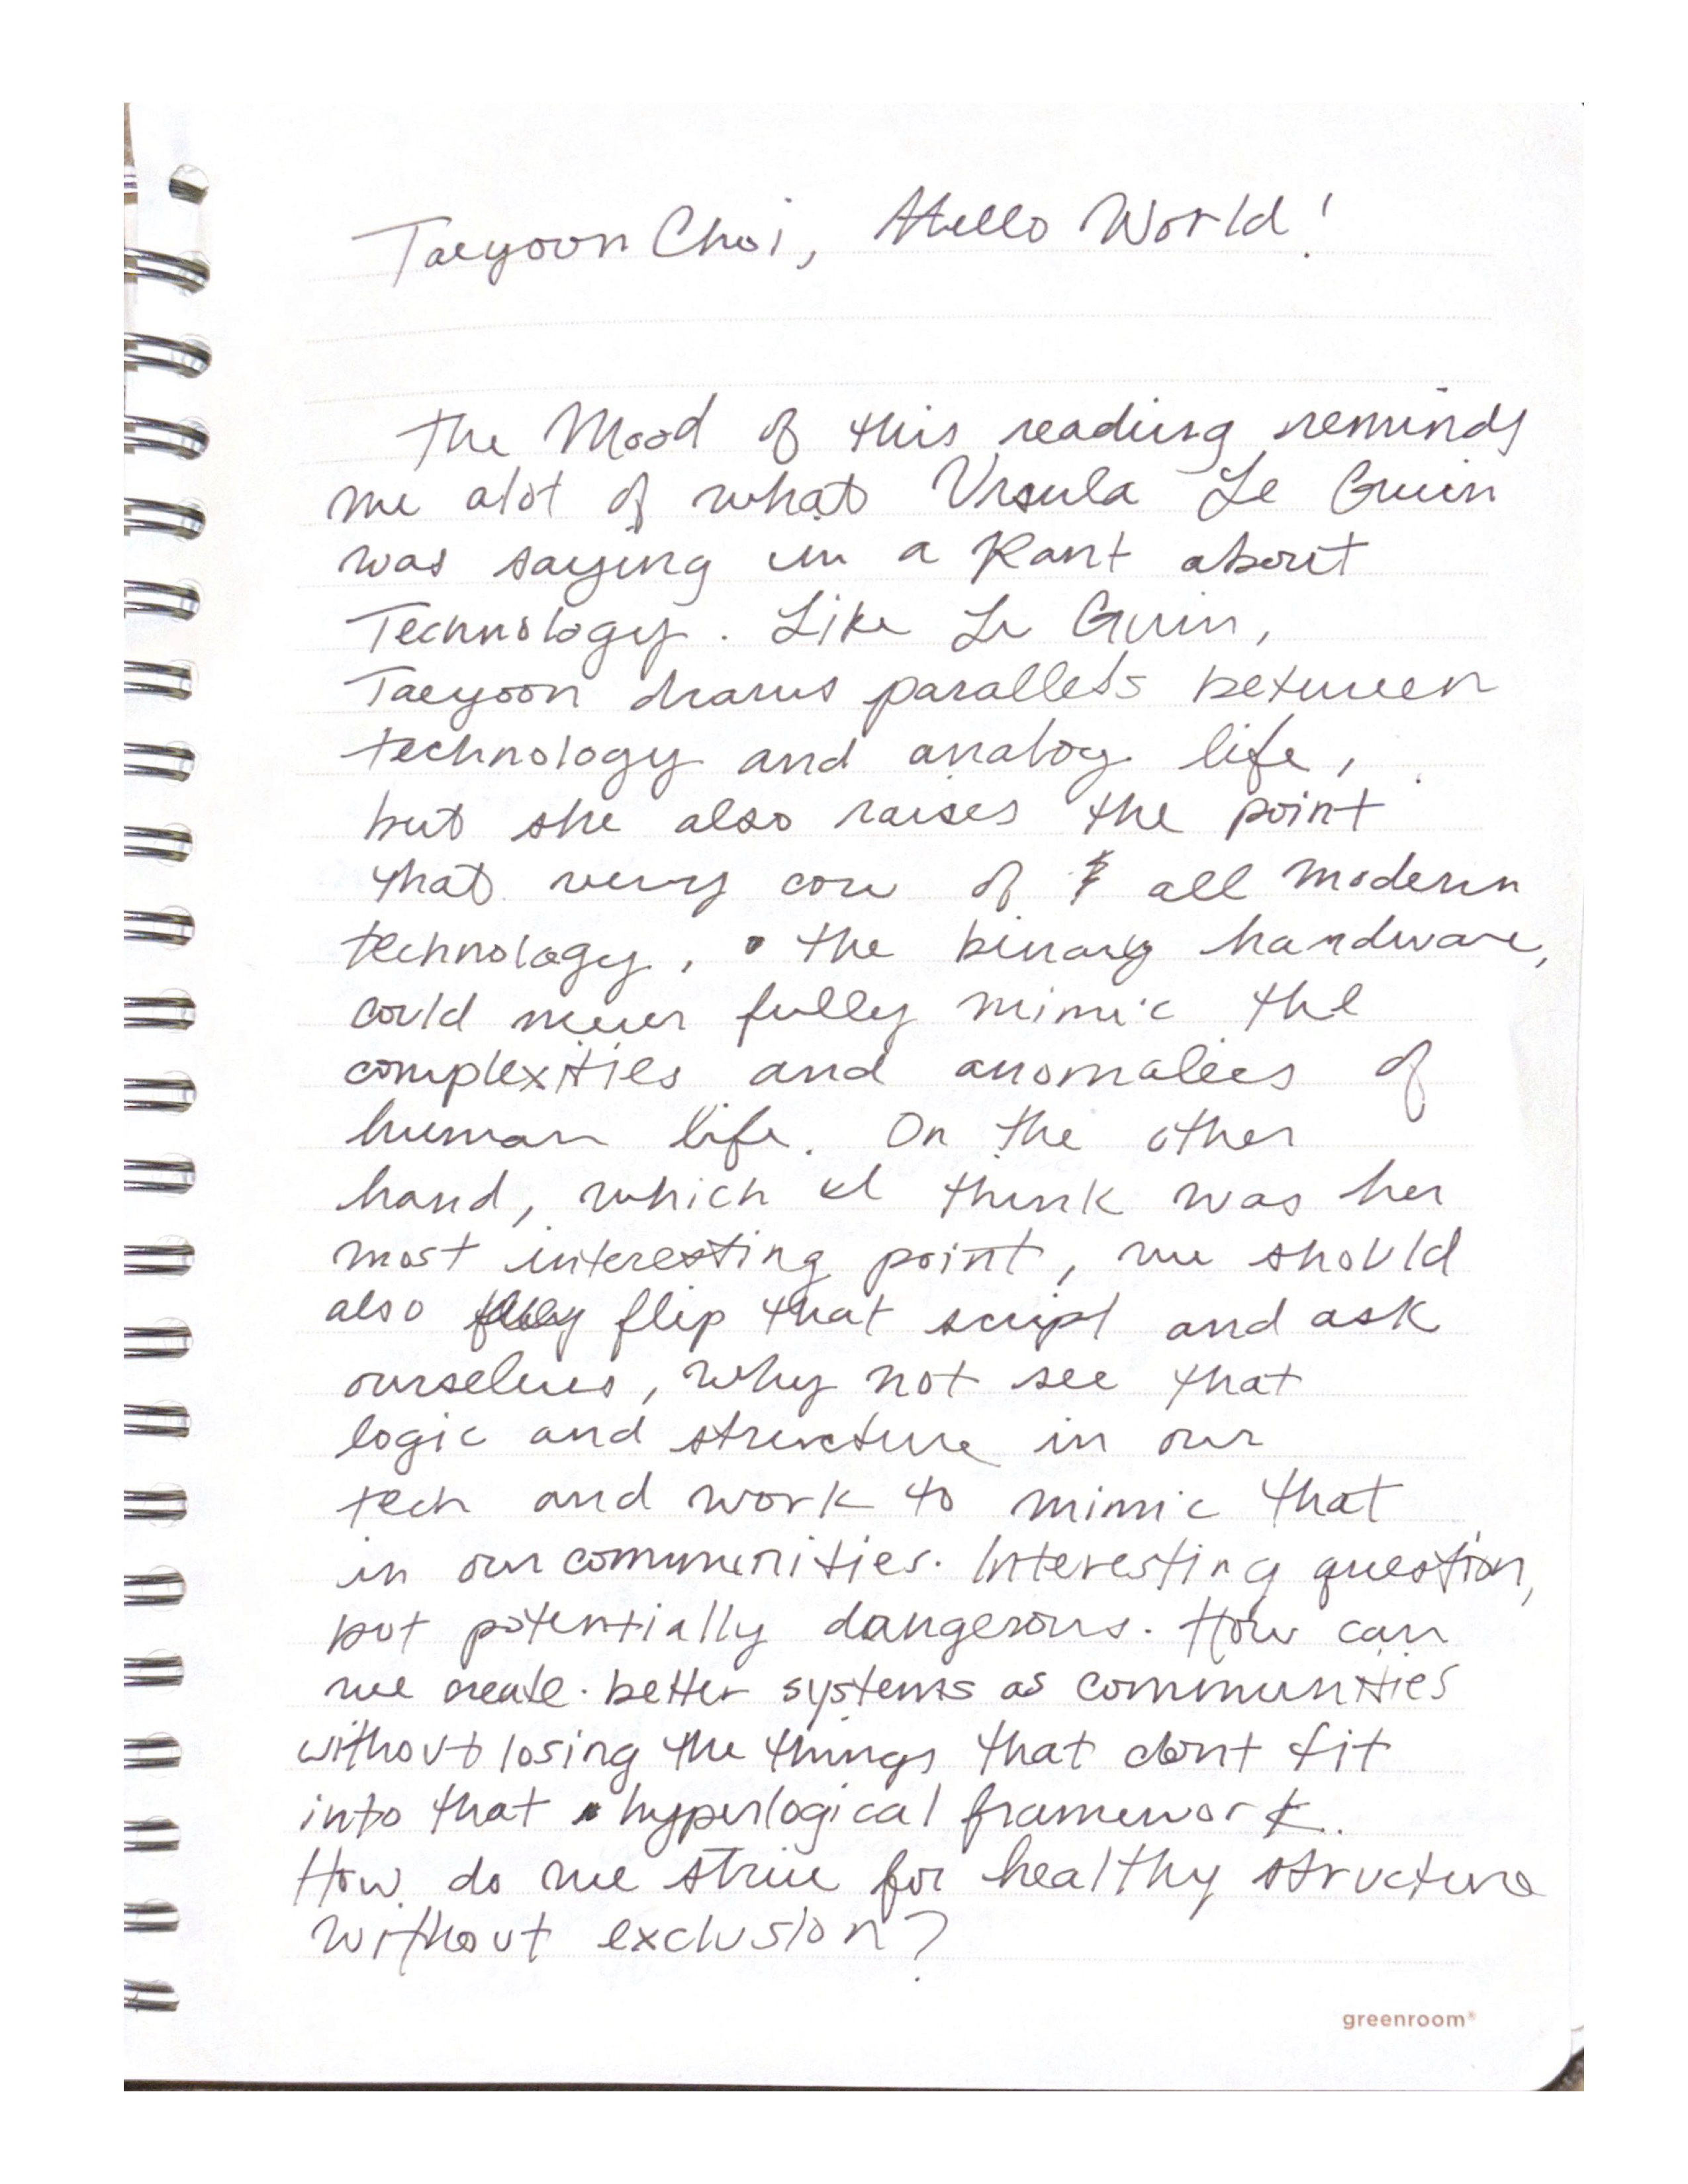 Taeyoon Choi, Hello World!
The Mood of this reading reminds
me alot of what Ursula Le Guin
was saying in a Rant about
Technology. Like Le Guin,
Taeyoon draws parallels between
technology and analog life,
but she also raises the point
that very core of all modern
technology, the binary hardware,
could never fully mimic the
complexities and anomalies of
human life. On the other
hand, which I think was her
most interesting point, we should
also flip that script and ask
ourselves, why not see that
logic and structure in our
tech and work to mimic that
in our communities. Interesting question,
but potentially dangerous. How can
we create better systems as communities
without losing the things that dont fit
into that hyperlogical framework.
How do we strive for healthy structure
without exclusion?
greenroom®